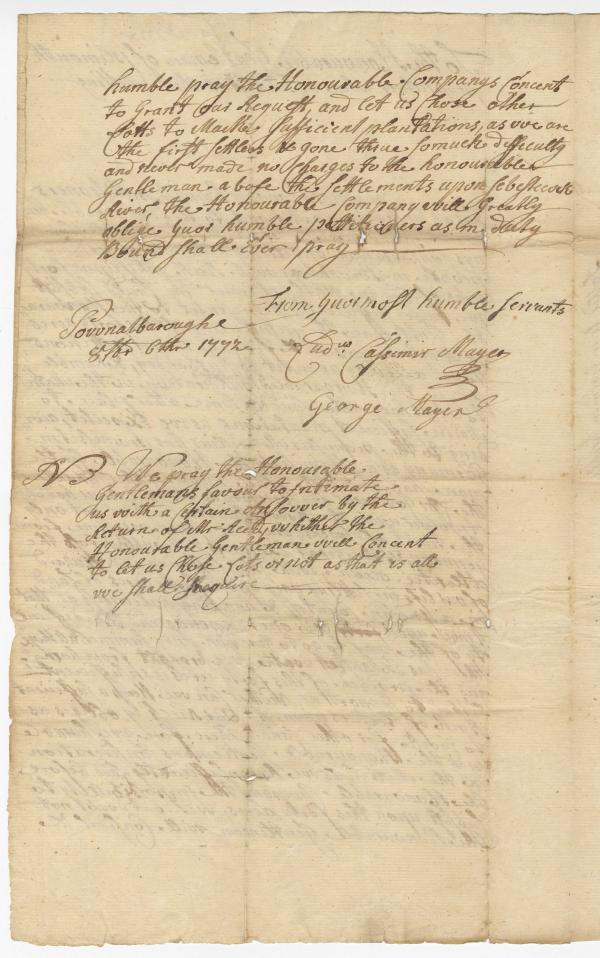 humble pray the Honourable Companys Concent
to Grant Our Request, and let us Chose other
Lotts to Macke Sufficient plantations, as vve are
the first settlers be gone thrue somuch difficulty
and never made no Charges to the honourable
Gentleman a bofe the settlements upon Sebestecook
River, the Honourable Company will Greatly
oblige your humble petitioners as in duty
Bound shall ever pray
From your most humble Servants
Povonalboroughe
8tbr 6th 1772
Ludw Cassimir Mayer
George Mayer
NB We pray the Honourable
Gentlemans favour to Intimate
us with a Certain Ansovver by the
Return of Mr. Reed, vvhither the
Honourable Gentleman vvill Concent
to let us Chose Lots or not as that is all
vve shall require